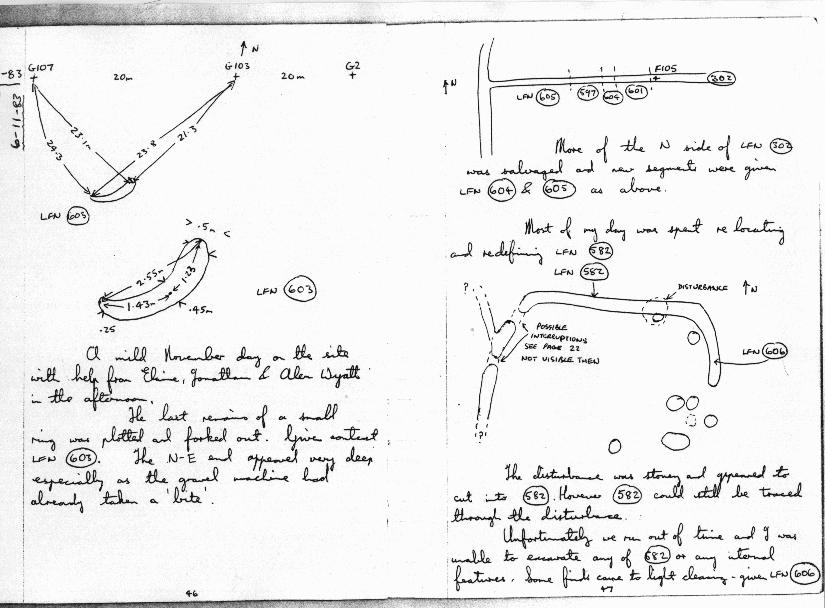 -83
6-11-83
↑ N
G107 20m G103 20m G2
24.3 23.1m 23.8 21.3
LFN 605
> .5m <
2.55m
1.23
1.43m
.45m
.25
LFN 603
A mild November day on the site
with help from Elaine, Jonathan & Alan Wyatt
in the afternoon.
The last remains of a small
ring was plotted and forked out. Given context
LFN 603. The N-E end appeared very deep
especially as the gravel machine had
already taken a 'bite'.
46
↑N
F105
302
LFN 605 597 604 601
More of the N side of LFN 302
was salvaged and new segments were given
LFN 604 & 605 as above.
Most of my day was spent re locating
and redefining LFN 582
LFN 582
? DISTURBANCE ↑ N
POSSIBLE
INTERRUPTIONS
SEE PAGE 22
NOT VISIBLE THEN
LFN 606
?
The disturbance was stoney and appeared to
cut into 582. However 582 could still be traced
through the disturbance.
Unfortunately we ran out of time and I was
unable to excavate any of 582 or any internal
features. Some finds came to light cleaning - given LFN 606
47